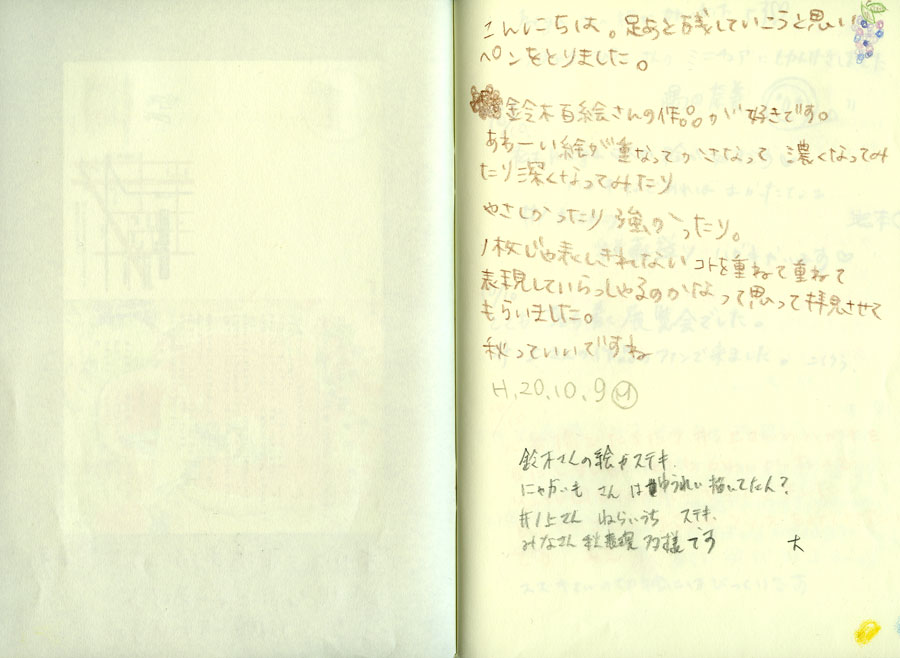 こんにちは。足あと残していこうと思い
ペンをとりました。
鈴木百絵さんの作品が好きです。
あわーい絵が重なってかさなって 濃くなってみ
たり深くなってみたり
やさしかったり強かったり。
1枚じゃ表しきれないコトを重ねて重ねて
表現していらっしゃるのかなって思って拝見させて
もらいました。
秋っていいですね
H.20.10.9 M
鈴木さんの絵がステキ
にゃがいも さんは ゆうれい描いてたん?
井上さん ねらいうち ステキ.
みなさん 秋表現 多様です 大